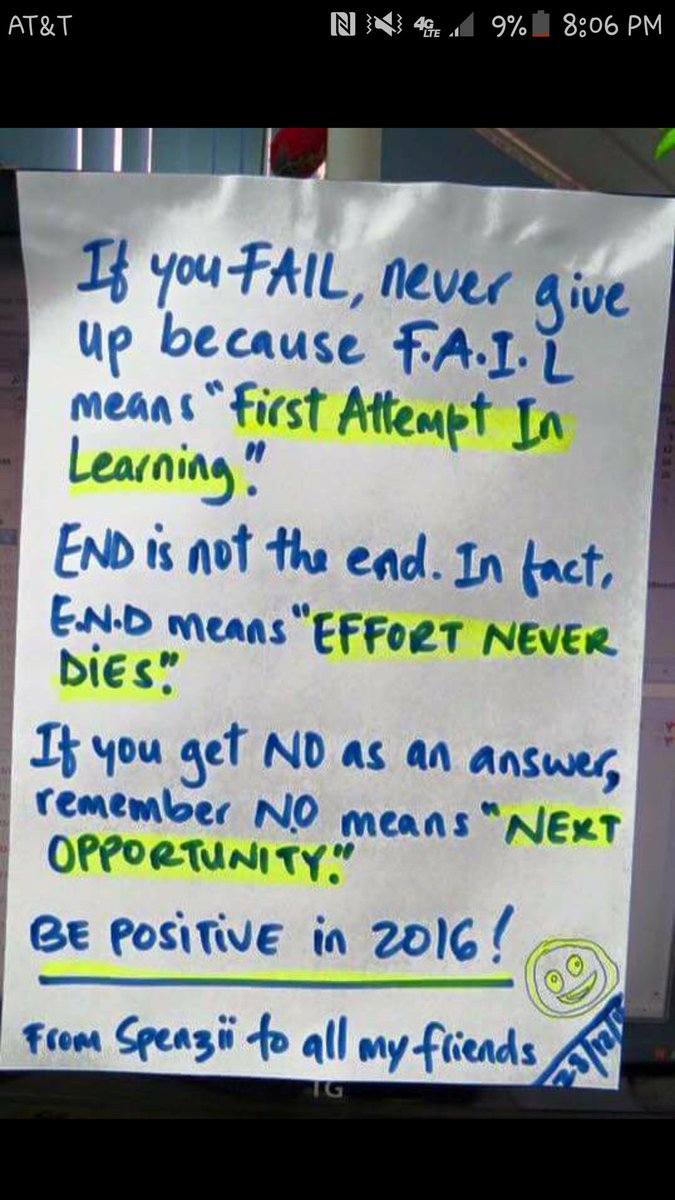 AT&T 4G LTE 9% 8:06 PM
If you FAIL, never give
up because F.A.I.L
means "First Attempt In
Learning."
END is not the end. In fact,
E.N.D means "EFFORT NEVER
DIES."
If you get NO as an answer,
remember N.O means "NEXT
OPPORTUNITY."
BE POSITIVE in 2016!
From Spenzii to all my friends